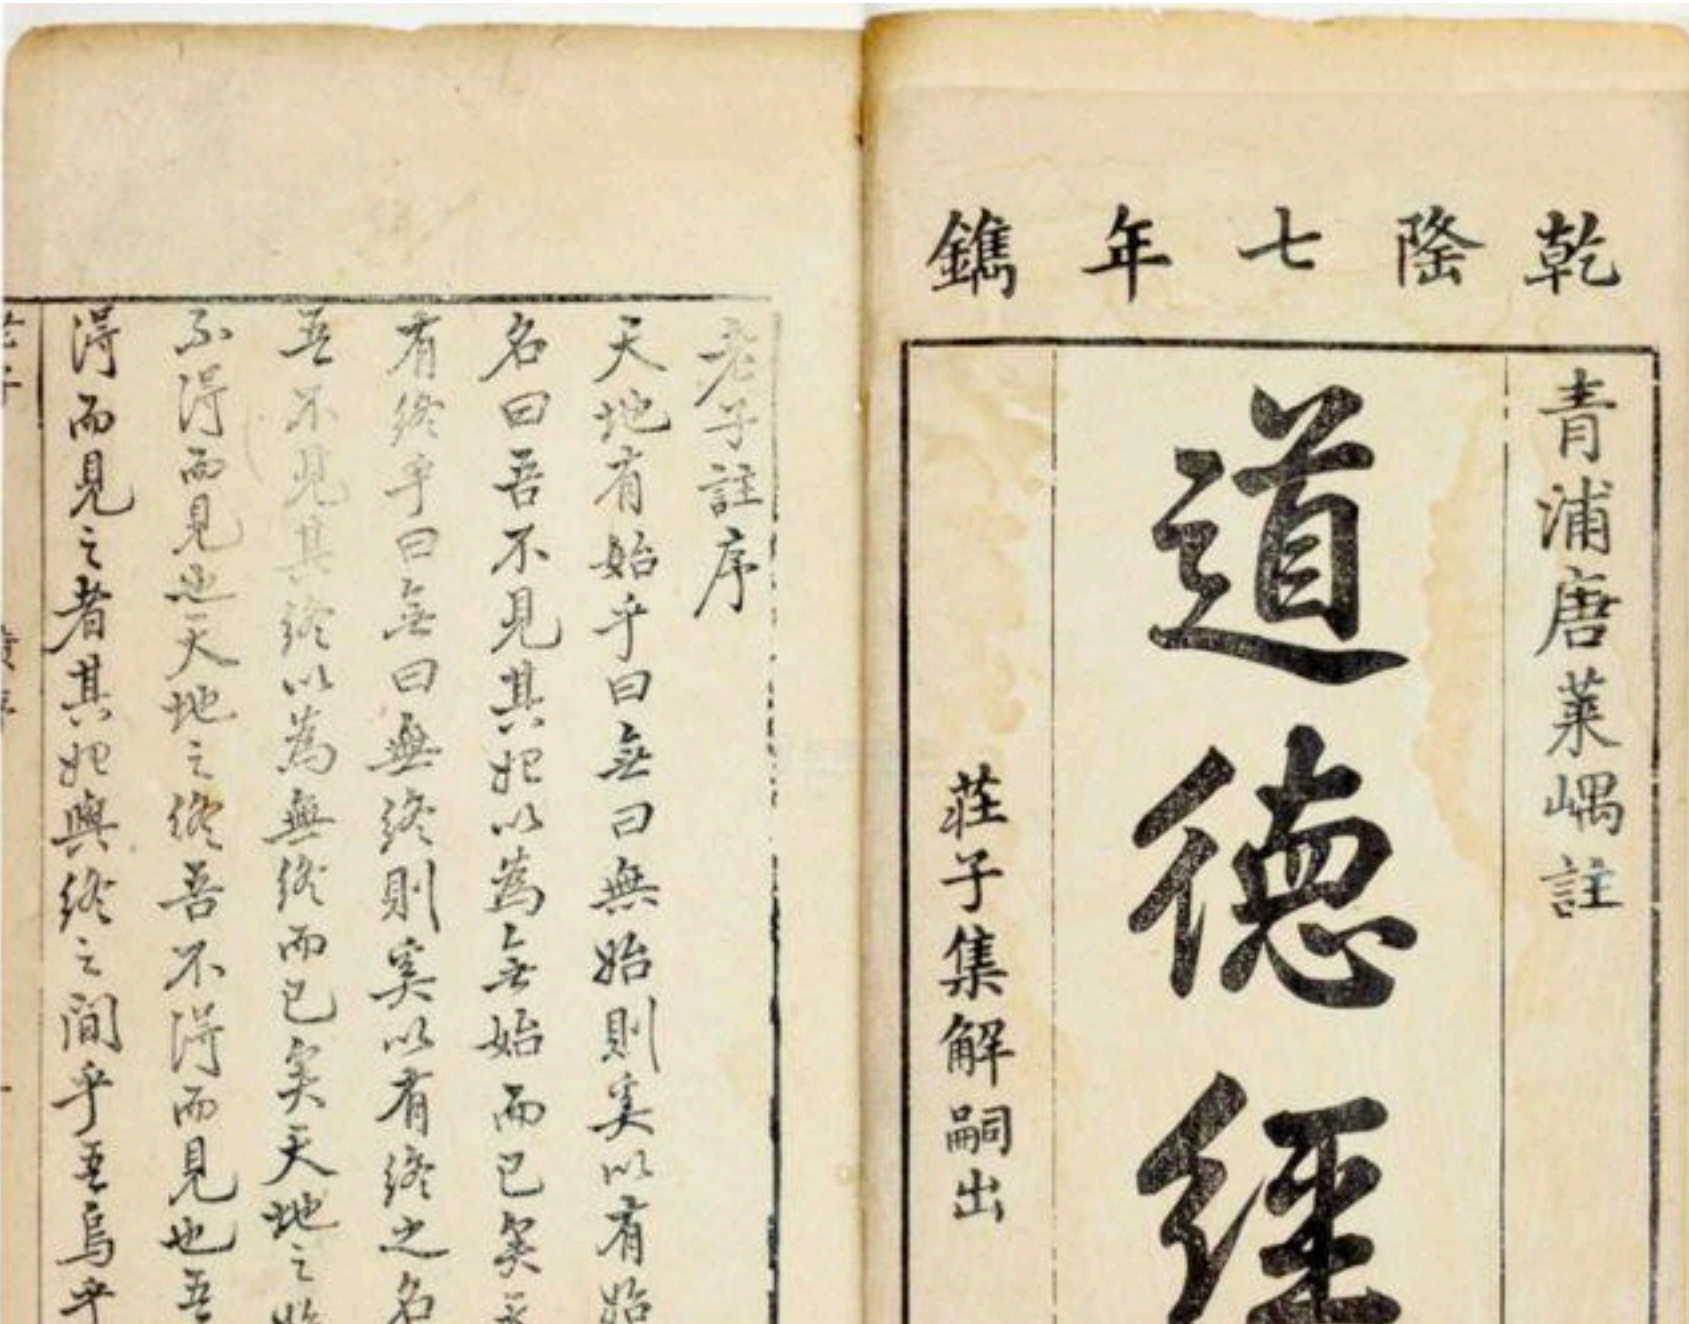 乾隆七年鐫
青浦唐萊嵎註
道德經
莊子集解嗣出
老子註序
天地有始乎曰無曰無始則奚以有始
名曰吾不見其始以為無始而已矣天
有終乎曰無曰無終則奚以有終之名
吾不見其終以為無終而已矣天地之始
不得而見也天地之終吾不得而見也吾
得而見之者其始與終之間乎吾烏乎
老子